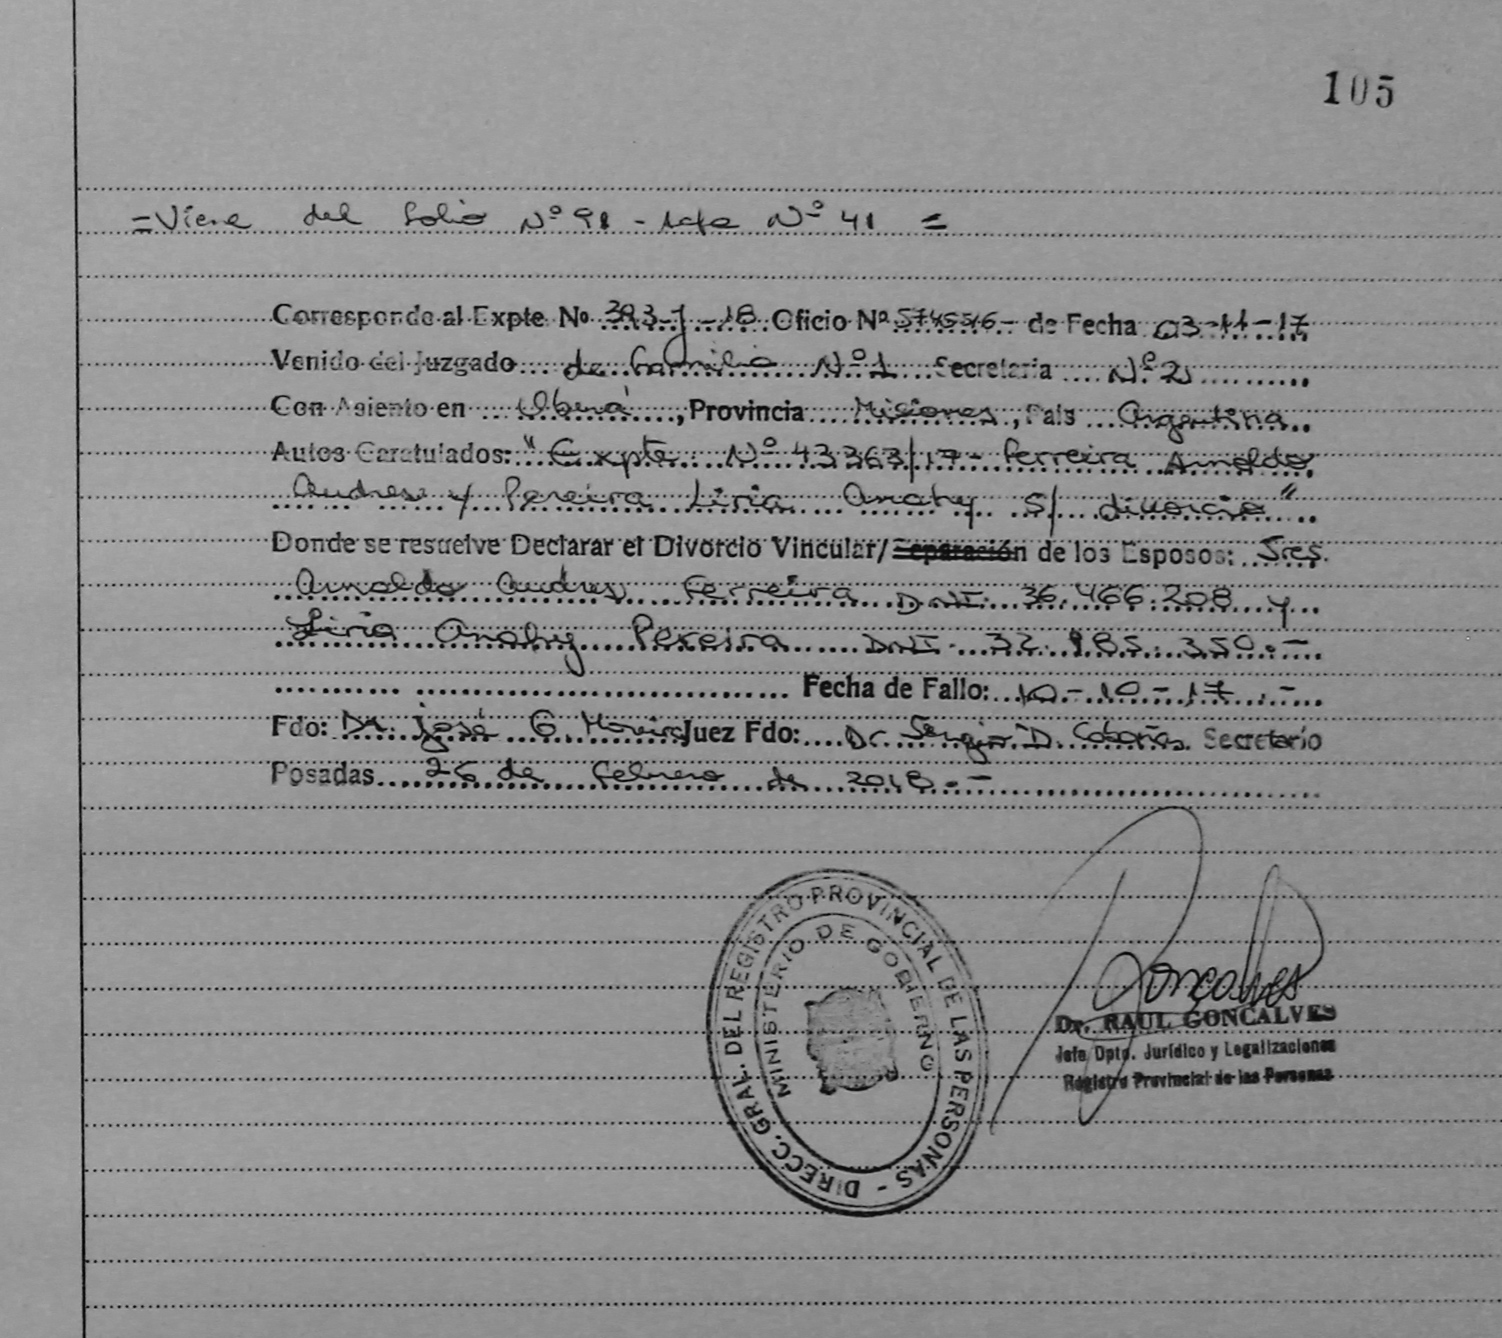 105
= Viene del folio Nº 98 - Acta Nº 41 =
Corresponde al Expte Nº 393-J-18 Oficio Nº 574556- de Fecha 03-11-17
Venido del Juzgado de familia Nº 1 Secretaria Nº 2
Con Asiento en Oberá, Provincia Misiones, Pais Argentina
Autos Caratulados: "Expte Nº 43363/17- Ferreira Arnoldo
Andres y Pereira Liria Anahy S/ divorcio"
Donde se resuelve Declarar el Divorcio Vincular/Separación de los Esposos: Sres.
Arnoldo Andres Ferreira DNI. 36.466.208 y
Liria Anahy Pereira DNI. 32.985.350.-
Fecha de Fallo: 10-10-17.-
Fdo: Dr. José G. Moreira Juez Fdo: Dr. Sergio D. Cabañas. Secretario
Posadas 26 de febrero de 2018.-
DIRECC. GRAL. DEL REGISTRO PROVINCIAL DE LAS PERSONAS -
MINISTERIO DE GOBIERNO
Gonçalves
Dr. RAUL GONCALVES
Jefe Dpto. Jurídico y Legalizaciones
Registro Provincial de las Personas